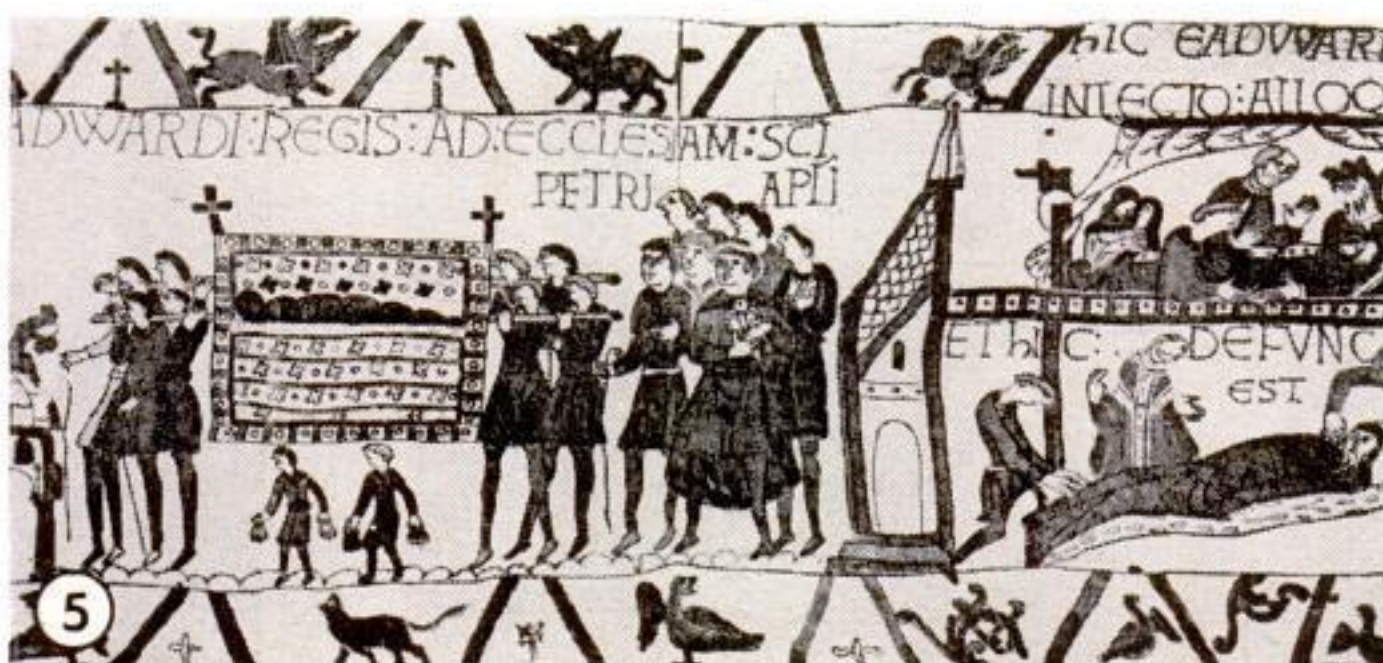 ADWARDI:REGIS:AD:ECCLESIAM:SCI
PETRI APLI
HIC EADWARD
INLECTO:ALLOQ
ET HIC: DEFUNC
EST
5